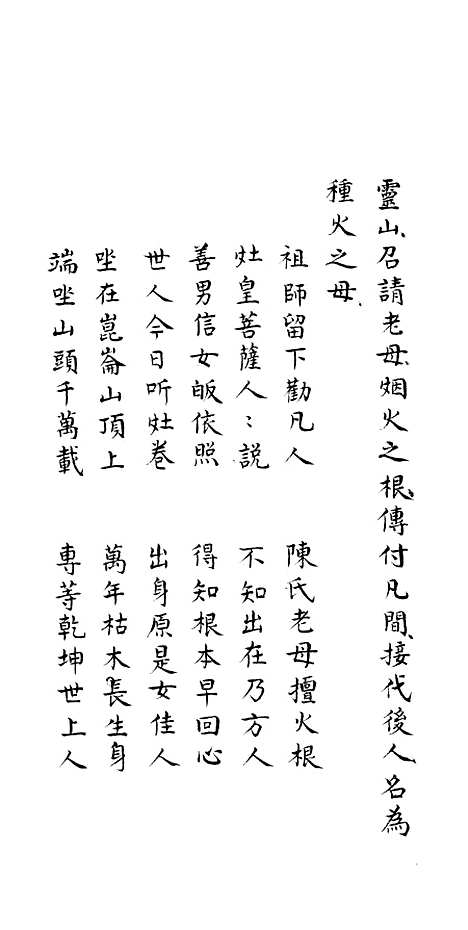 靈山、召請老母、烟火之根、傳付凡間、接代後人、名為
種火之母、
祖師留下勸凡人　陳氏老母擅火根
灶皇菩薩人〻説　不知出在乃方人
善男信女皈依照　得知根本早回心
世人今日听灶卷　出身原是女佳人
坐在崑崙山頂上　萬年枯木長生身
端坐山頭千萬載　專等乾坤世上人